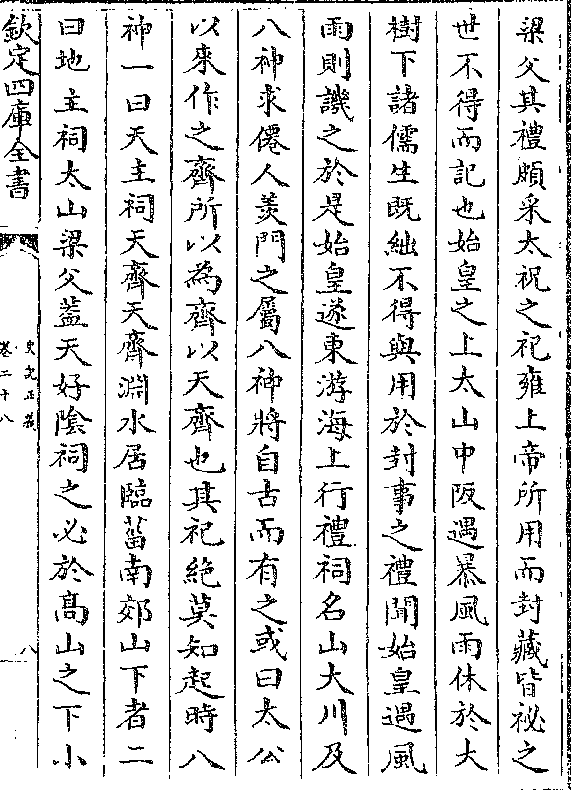 梁父其禮頗采太祝之祀雍上帝所用而封藏皆祕之
世不得而記也始皇之上太山中阪遇暴風雨休於大
樹下諸儒生既絀不得與用於封事之禮聞始皇遇風
雨則譏之於是始皇遂東游海上行禮祠名山大川及
八神求僊人羨門之屬八神將自古而有之或曰太公
以來作之齊所以為齊以天齊也其祀絶莫知起時八
神一曰天主祠天齊天齊淵水居臨菑南郊山下者二
曰地主祠太山梁父蓋天好隂祠之必於髙山之下小
欽定四庫全書
史記正義
卷二十八
八